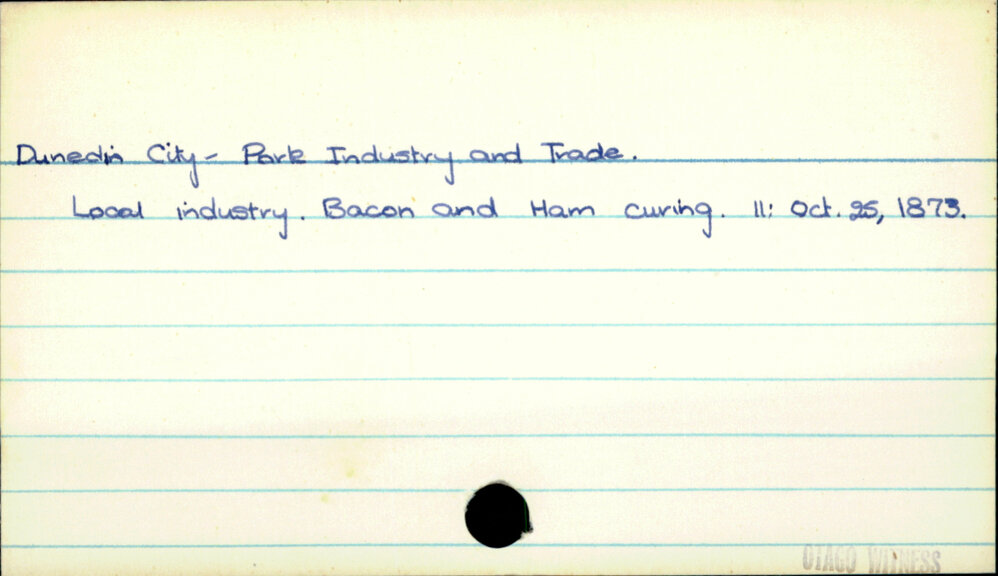 Dunedin City - Pork Industry and Trade.
Local industry. Bacon and Ham curing. 11: Oct. 25, 1873.
OTAGO WITNESS